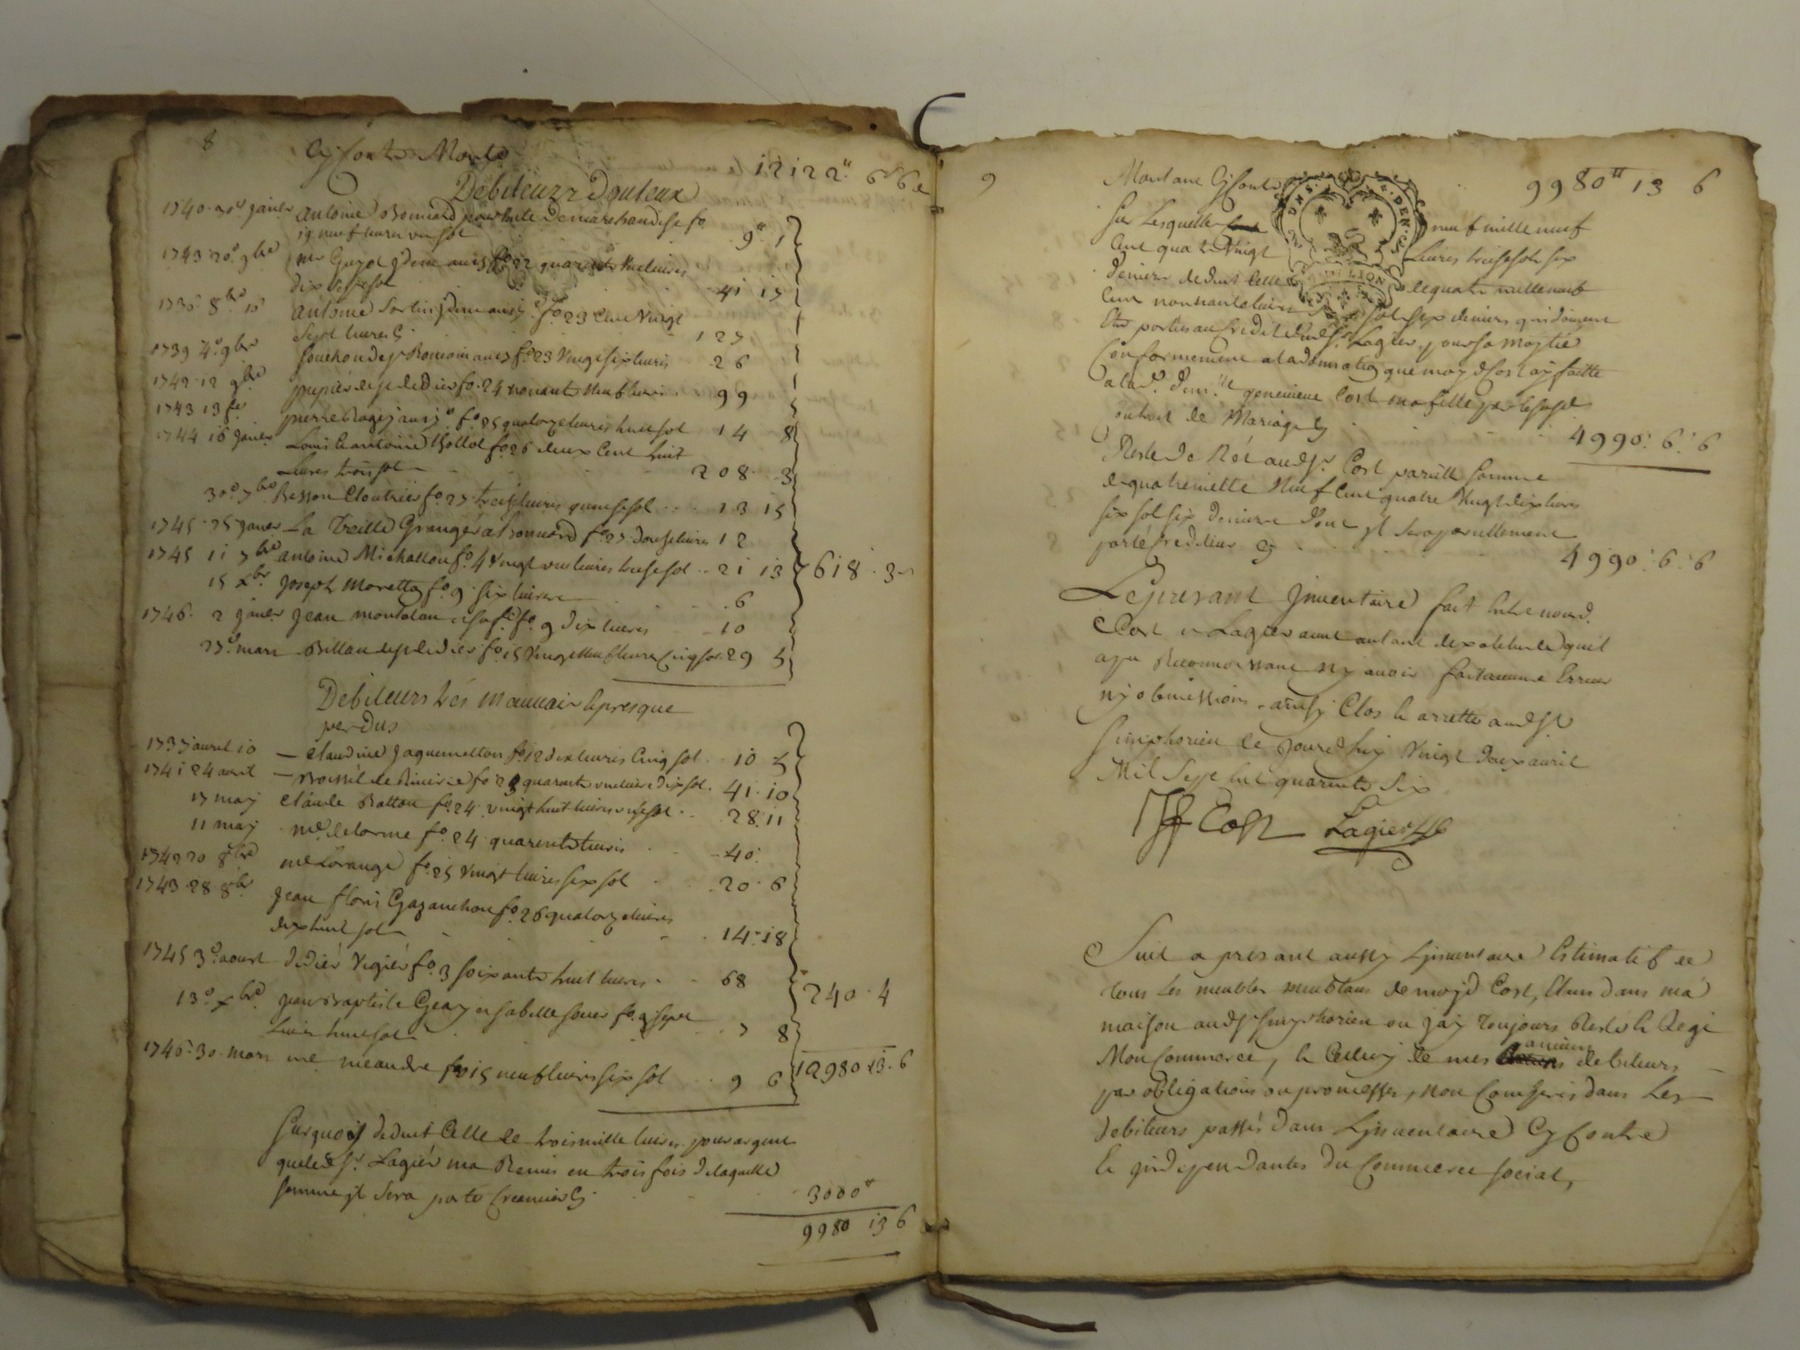 8
Cy Contre Monte 12122 ll 6 s 6 d
Debiteurs Douteux
1740 30e janier antoine Bonnard pour toille de marchandise fo
19 neuf livres un sol 9 ll 1
1743 20e 9bre Mr Guyot fo 22 quarante une livres
dix sept sol 41 17
1736 8bre 10 antoine fo 23 Cent Vingt
Sept livres Cy 127
1739 4e 9bre fo 23 Vingt six livres 26
1742 12 9bre fo 24 nonante neuf livres 99
1743 13 fo 25 quatorze livres huit sol 14 8
1744 16 janier Louis et antoine fo 26 deux Cent huit
Livres trois sol 208 3
30e 7bre Besson Cloutrier fo 27 treize livres quinse sol 13 15
1745 25 janier La Granger a Bonnard fo 27 douse livres 12
1745 11 7bre antoine Michallon fo 4 Vingt une livres treise sol 21 13 618 3
15 xbre Joseph Moretton fo 9 six livres 6
1746 2 janier jean fo 9 dix livres 10
27e mars Billon de fo 15 Vingt neuf livres Cinq sol 29 5
Debiteurs très mauvais et presque
perdus
1737 avril 10 Claudine Jaquemetton fo 12 dix livres Cinq sol 10 5
1741 24 avril de fo 23 quarante une livres dix sol 41 10
17 may Claude Batton fo 24 vingt huit livres onse sol 28 11
11 may Me delorme fo 24 quarente livres 40
1742 20 8bre Me Lorange fo 25 Vingt livres six sol 20 6
1743 28 8bre jean floris Gazanchon fo 26 quatorze livres
dix huit sol 14 18
1745 3e aoust didier Vigier fo 3 soixante huit livres 68 240 4
13e xbre jean Baptiste Geay fo 9 sept
Livres huit sol 7 8
1746 30 mars Me meandre fo 15 neuf livres six sol 9 6 12980 13 6
Surquoy deduit Celle de trois mille livres pour argent
que led Sr Lagier ma Remis en trois fois de laquelle
somme jl sera porté Creancier Cy 3000 ll
9980 13 6
9
Montant Cy Contre 9980 ll 13 6
Sur Lesquelles neuf mille neuf
Cent quatre Vingt Livres treise sols six
deniers deduit Celle de quatre mille neuf
Cent nonnante livres six sol six deniers qui doivent
Etre portés au Credit dud Sr Lagier pour sa moytié
Conformement a la donnation que moy d Cost ay faitte
a lad Demlle genevieve Cost ma fille par le susd
Contrat de Mariage Cy 4990 6 6
Reste de Net aud Sr Cost pareille somme
de quatre mille Neuf Cent quatre Vingt dix livres
six sol six deniers dont jl sera pareillement
porté Crediteur Cy 4990 6 6
Le presant jnventaire fait entre nousd
Cost et Lagier avec autant dexatitude quil
a pu Reconnoissant ny avoir fait aucune Erreur
ny obmission. ainsy Clos et arretté aud St
simphorien le jourd'huy Vingt deux avril
Mil Sept Cent quarente six
Cost Lagier
Suit a presant aussy Ljnventaire Estimatif de
tous les meubles meublans de moyd Cost, Etans dans ma
maison aud St Simphorien ou jay toujours Resté et Regi
Mon Commerce, et Celluy de mes anciens debiteurs
par obligations ou promesses, non Compris dans Les
debiteurs passés dans Ljnventaire Cy Contre
Et jndependantes du Commerce social,
GEN. DE LION